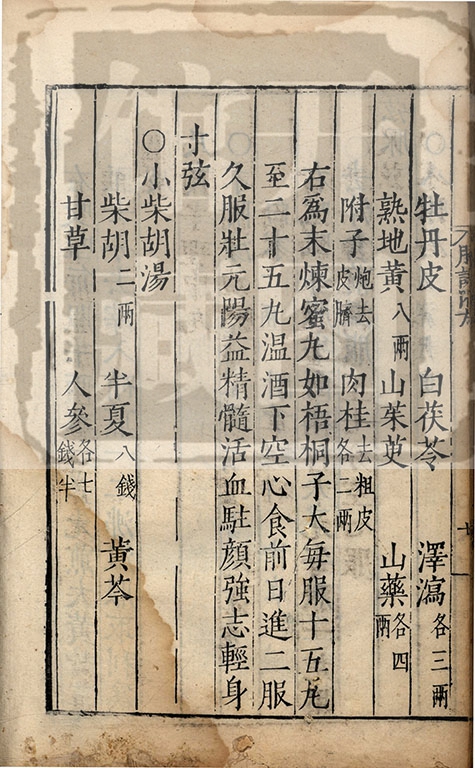 牡丹皮 白茯苓 澤瀉各三兩
熟地黃八兩 山茱萸 山藥各四兩
附子炮去皮臍 肉桂去粗皮各二兩
右為末煉蜜丸如梧桐子大每服十五丸
至二十五丸温酒下空心食前日進二服
久服壯元陽益精髓活血駐顏強志輕身
寸弦
〇小柴胡湯
柴胡二兩 半夏八錢 黃芩
甘草 人參各七錢半